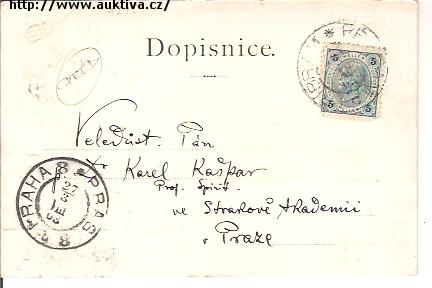 http://www.auktiva.cz/
Dopisnice.
5 5
5 5
Veledůst. Pán
Karel Kašpar
Prof. Spirit.
ve Strakově Akademii
v Praze
PRAHA 8 * PRAG 8